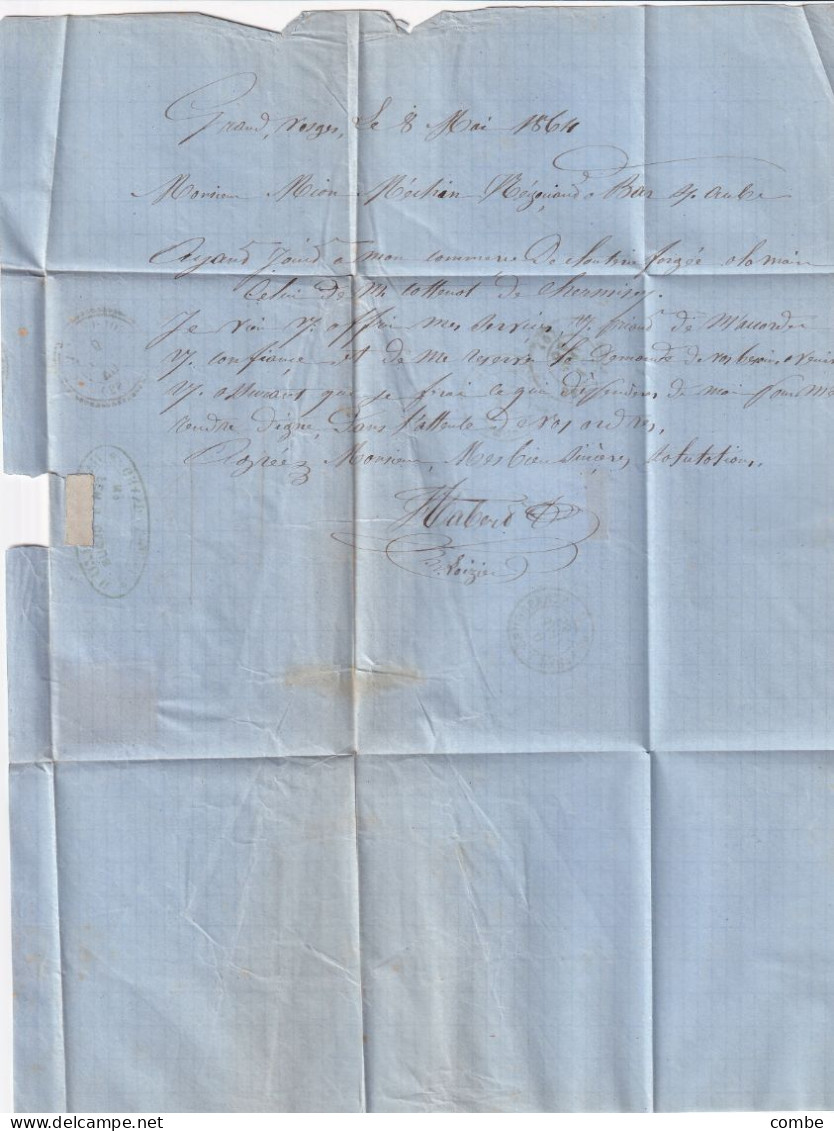 Grand, Vosges, Le 8 Mai 1864
Monsieur Mion Méchin Négociand a Bar s/. aube
Ayand joind a mon commerce De clouterie forgée a la main
Celui de Mr Cottenot de Chermisey.
Je vien V. offrir mes services, V. priand de M'accorder
V. confiance et de me reserver la demande de vos besoins a venir
V. assurant que je ferai ce qui dépendras de moi pour Me
rendre digne, Dans l'attente de vos ordres,
Agréez Monsieur, Mes bien sincères Salutations,
delcampe.net
combe